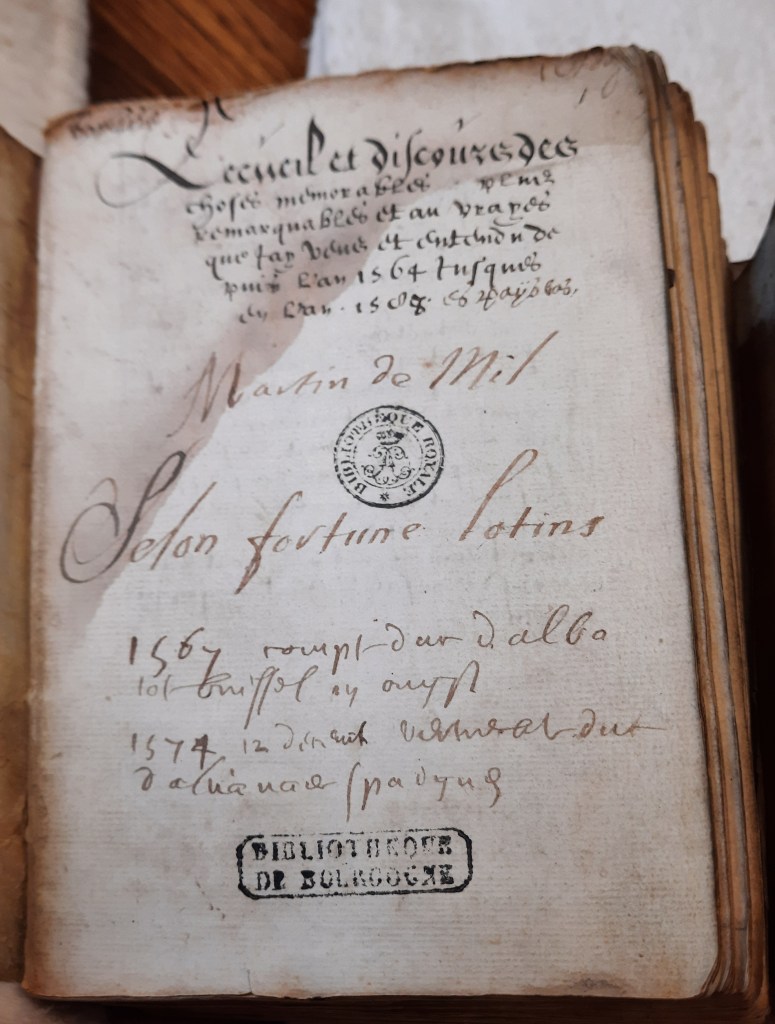 Recueil et discours des
choses memorables, plus
remarquables et au vrayes
que Jay veue et entendu de
puis L'an 1564 Jusques
en L'an . 1508 . es Paÿsbas.
Martin de Mil
BIBLIOTHÈQUE ROYALE
Selon fortune lotins
1567 compt duc d'alba
tot bruissel in ougst
1574 in duc
BIBLIOTHEQUE
DE BOURGOGNE